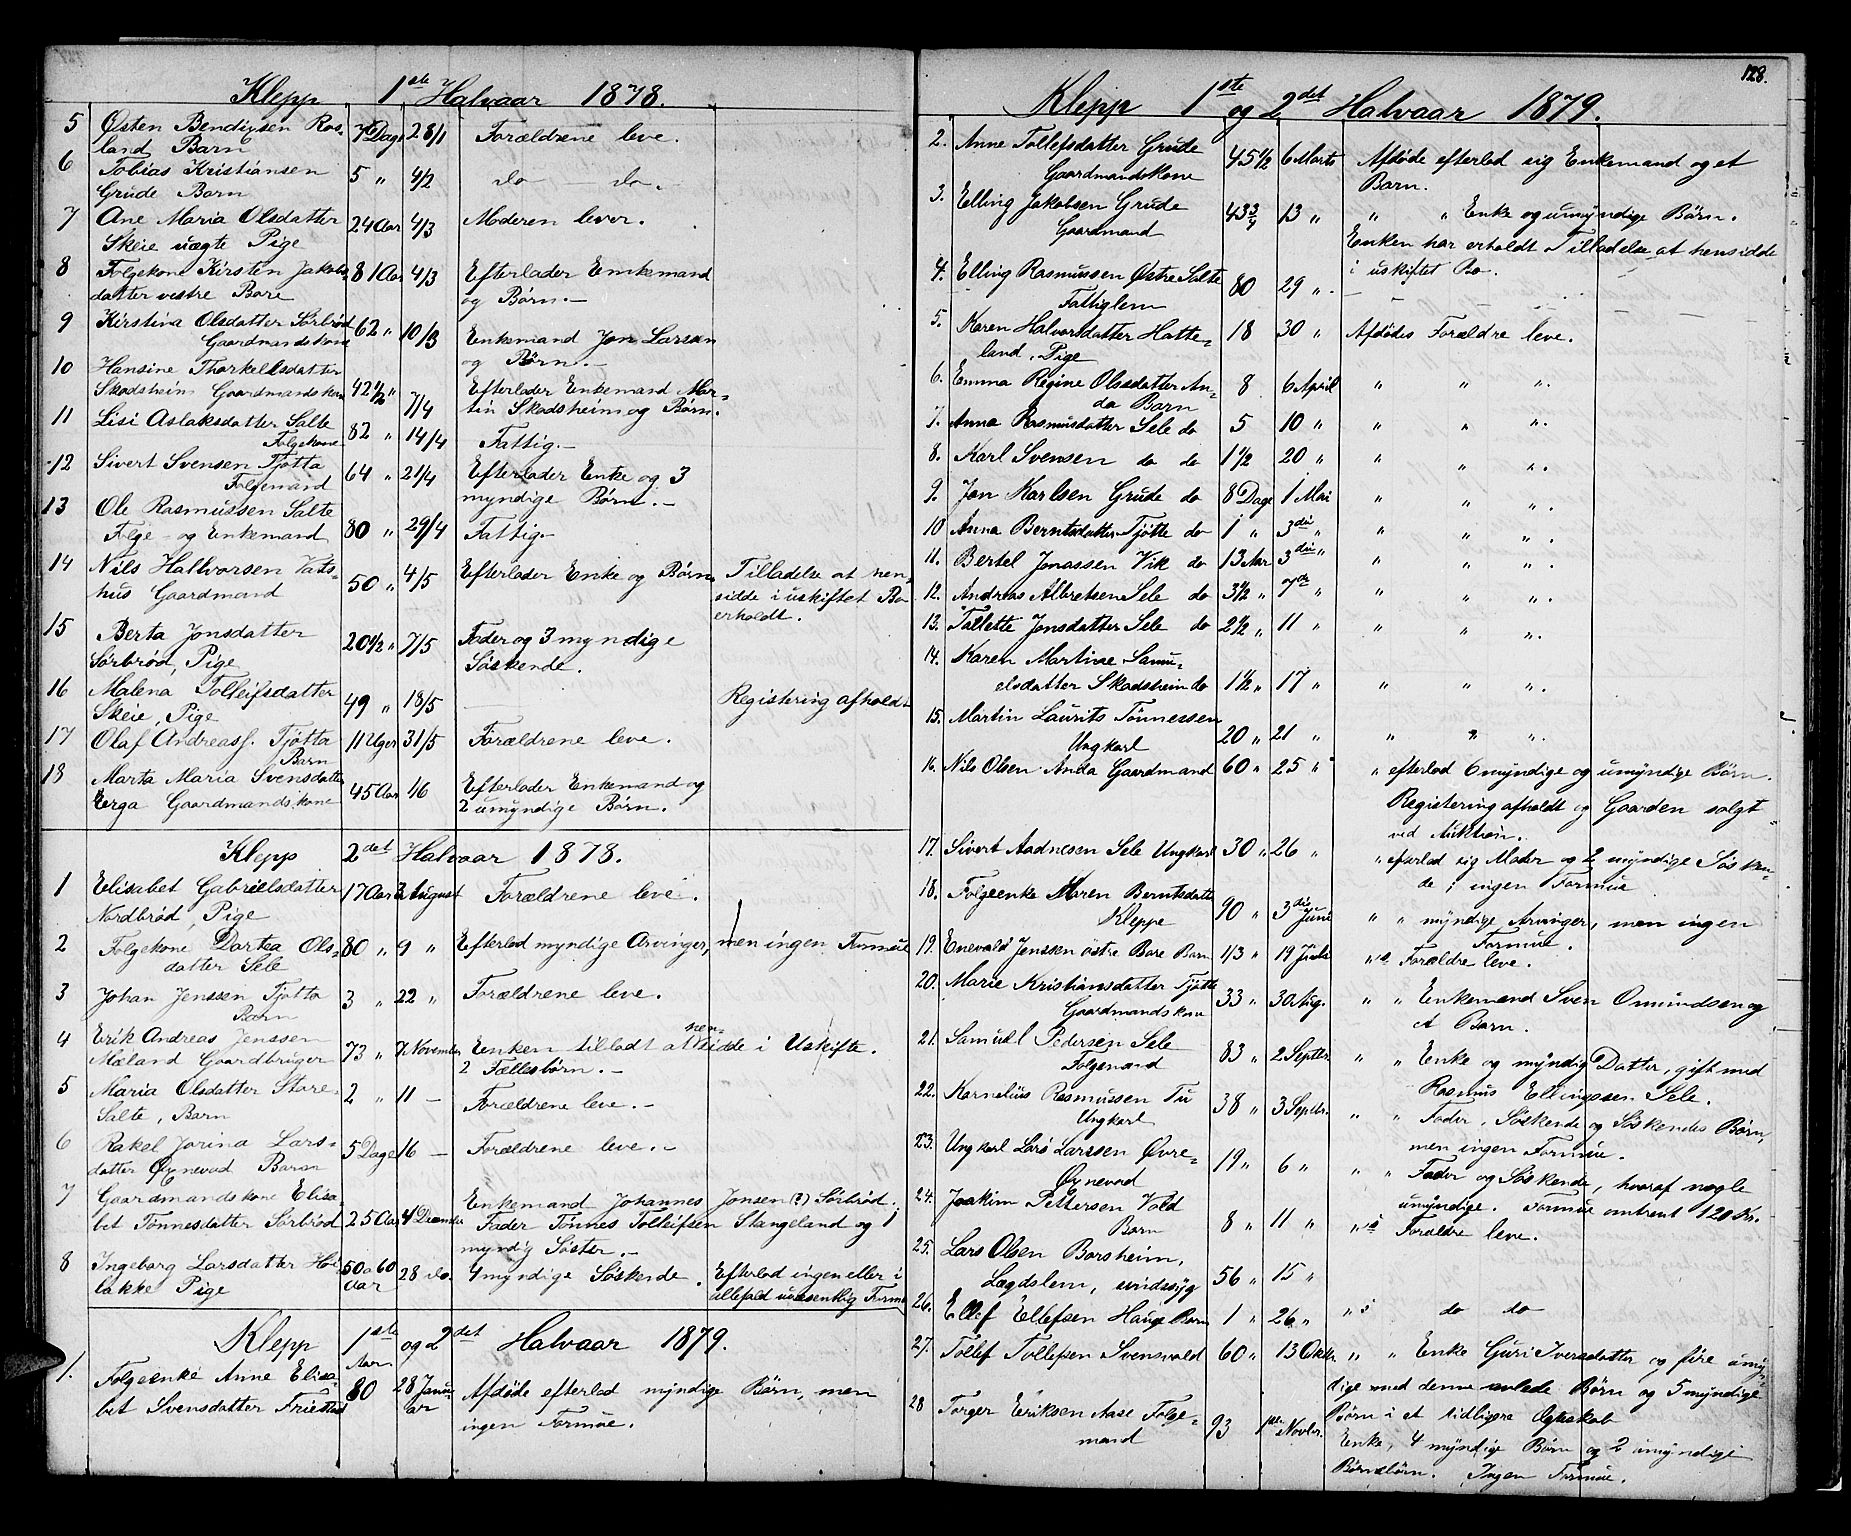 Klepp 1ste Halvaar 1878.
5 Østen Bendigsen Ros- 7 Dage 28/1 Forældrene leve.
land Barn
6 Tobias Kristiansen 5 " 4/2 do do.
Grude Barn
7 Ane Maria Olsdatter 24 Aar 4/3 Moderen lever.
Skeie uægte Pige
8 Folgekone Kirsten Jakobs- 81 Aar 4/3 Efterlader Enkemand
datter vestre Bore og Børn.-
9 Kirstina Olsdatter Sørbrød 62 " 10/3 Enkemand Jon Larsen
Gaardmandskone og Børn.-
10 Hansine Thorkellsdatter
Skadsheim Gaardmandskone 42 1/2 " 7/4 Efterlader Enkemand Mar-
tin Skadsheim og Børn.
11 Lisi Aslaksdatter Salte 82 " 14/4 Fattig.-
Folgekone
12 Sivert Svensen Tjøtta 64 " 21/4 Efterlader Enke og 3
Folgemand myndige Børn.-
13 Ole Rasmussen Salte 80 " 29/4 Fattig.-
Folge- og Enkemand
14 Nils Hallvorsen Vats- 50 " 4/5 Efterlader Enke og Børn. Tilladelse at hen-
hus Gaardmand sidde i uskiftet Bo
erholdt.
15 Berta Jonsdatter 20 1/2 " 7/5 Fader og 3 myndige
Sørbrød, Pige Söskende.
16 Malena Tolleifsdatter 49 " 18/5 Registering afholdt
Skeie, Pige
17 Olaf Andreass. Tjøtta 11 Uger 31/5 Forældrene leve.
Barn
18 Marta Maria Svensdatter 45 Aar 16 Efterlader Enkemand og
Erga Gaardmandskone 2 umyndige Børn.
Klepp 2det Halvaar 1878.
1 Elisabet Gabrielsdatter 17 Aar 3 August Forældrene leve.
Nordbrød, Pige
2 Folgekone Dortea Ols- 80 " 9 " Efterlod myndige Arvinger, men ingen Formue
datter Sele
3 Johan Jenssen Tjøtta 3 " 22 " Forældrene leve.
Barn
4 Erik Andreas Jenssen 73 " 7 November Enken tilladt at hen-sidde i Uskifte.
Mæland Gaardbruger 2 Fællesbørn.-
5 Maria Olsdatter Store- 2 " 11 - Forældrene leve.-
Salte, Barn
6 Rakel Jorina Lars- 5 Dage 16 - Forældrene leve.-
datter Øxnevad Barn
7 Gaardmandskone Elisa- Enkemand Johannes Jonsen (?) Sørbrød.
bet Tønnesdatter Sørbrød 25 Aar 4 December Fader Tönnes Tolleifsen Stangeland og 1
myndig Søster.-
8 Ingeborg Larsdatter Hoi- 50 a 60 28 do. 4 myndige Söskende. Efterlod ingen eller i
lakke Pige Aar allefald uvæsentlig Formue
Klepp 1ste og 2det Halvaar 1879.
1. Folgeenke Anne Elisa- Aar 80 28 Janu- Afdøde efterlod myndige Børn, men
bet Svensdatter Friestad ar ingen Formue.
128.
Klepp 1ste og 2det Halvaar 1879.
2. Anne Tollefsdatter Grude 45 1/2 6 Marts Afdøde efterlod sig Enkemand og et
Gaardmandskone Barn.
3. Elling Jakobsen Grude 43 3/4 13 " " " Enke og umyndige Børn.
Gaardmand Enken har erholdt Tilladelse at hensidde
i uskiftet Bo.
4. Elling Rasmussen Østre Salte 80 29 " - - -
Fattiglem
5. Karen Halvorsdatter Hatte- 18 30 " Afdødes Forældre leve.
land, Pige
6. Emma Regine Olsdatter An- 8 6 April " " ".
da Barn
7. Anna Rasmusdatter Sele do 5 10 " " " ".
8. Karl Svensen do do 1 1/2 20 " " " ".
9. Jon Karlsen Grude do 8 Dage 1 Mai " " ".
10 Anna Berntsdatter Tjøtte do 1 " 3die " " " ".
11. Bertel Jonassen Vik do 13 Aar 3die " " " ".
12. Andreas Albretsen Sele do 3 1/2 " 7de " " " ".
13. Tallette Jonsdatter Sele do 2 1/2 " 11 " " " ".
14. Karen Martine Samu-
elsdatter Skadsheim do 1 1/2 " 17 " " " ".
15. Martin Laurits Tönnessen
Ungkarl 20 " 21 " " " ".
16. Nils Olsen Anda Gaardmand 60 " 25 " " efterlod 6 myndige og umyndige Børn.
Registering afholdt og Gaarden solgt
ved Auktion.
17. Sivert Aadnesen Sele Ungkarl 30 " 26 " " efterlod sig Moder og 2 myndige Søsken-
de; ingen Formue
18. Folgeenke Maren Berntsdatter
Kleppe 90 " 3die Juni " " myndige Arvinger, men ingen
Formue.
19. Enevald Jenssen østre Bore Barn 1/3 " 19 Juli " s Forældre leve.
20. Marie Kristiansdatter Tjøtte 33 " 30 Aug. " " Enkemand Sven Omundsen og
Gaardmandskone et Barn.
21. Samuel Pedersen Sele 83 " 2 Septbr. " " Enke og myndig Datter, gift med
Folgemand Rasmus Ellingssen Sele.
22. Kornelius Rasmussen Tu 38 " 3 Septbr. " " Fader, Söskende og Söskendes Børn,
Ungkarl men ingen Formue.
23. Ungkarl Lars Larssen Øvre- 19 " 6 " " " Fader og Söskende, hvoraf nogle
Øxnevad umyndige. Formue omtrent 120 Kr.
24. Joakim Pettersen Vold 8 " 11 " " s Forældre leve.
Barn
25. Lars Olsen Borsheim,
Lægdslem, sindssyg 56 " 15 "
26. Ellef Ellefsen Hauge Barn 1 " 26 " " s do do
27. Tollef Tollefsen Svensvold 60 " 13 Oktbr. " " Enke Guri Iversdatter og fire umyn-
dige med denne avlede Børn og 5 myndige
Børn i et tidligere Ægteskab
28 Torger Eriksen Aase Folge- 93 1ste Novbr. Enke, 4 myndige Børn og 2 umyndige
mand Børnebørn. Ingen Formue.